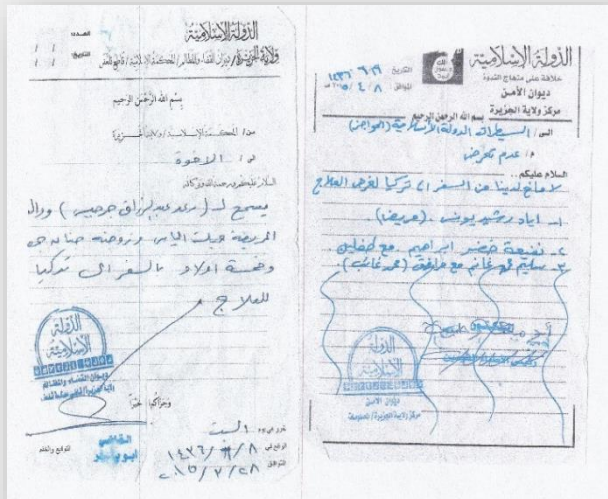 الدولة الإسلامية
خلافة على منهاج النبوة
ديوان الأمن
مركز ولاية الجزيرة
التاريخ
الموافق ٨ / ٤ / ٢٠١٥
بسم الله الرحمن الرحيم
الى / السيطرات الدولة الاسلامية (الحواجز)
م / عدم تعرض
السلام عليكم ..
لا مانع لدينا من السفر الى تركيا لغرض العلاج
١- اياد رشيد يونس . (مريض) .
٢- نفيعة خضر ابراهيم . مع طفلين .
٣- سليم غانم مع مرافقة (محمد غائب) .
الدولة
الإسلامية
ديوان الأمن
مركز ولاية الجزيرة
الدولة الإسلامية
العدد
التاريخ: / /
ولاية الجزيرة / ديوان القضاء والمظالم / المحكمة الإسلامية /
بسم الله الرحمن الرحيم
من / المحكمة الإسلامية / ولاية الجزيرة
الى / الاخوة
السلام عليكم ورحمة الله وبركاته
يسمح لـ (رعد عبدالرزاق جرجيس)
المريضة وزوجته
وخمسة اولاد بالسفر الى تركيا
للعلاج
الدولة
الإسلامية
ديوان القضاء والمظالم
وجزاكم خيرا
القاضي
السبت
٨ / / ١٤٣٦
الموافق ٢٨ / ٣ / ٢٠١٥
التوقيع والختم